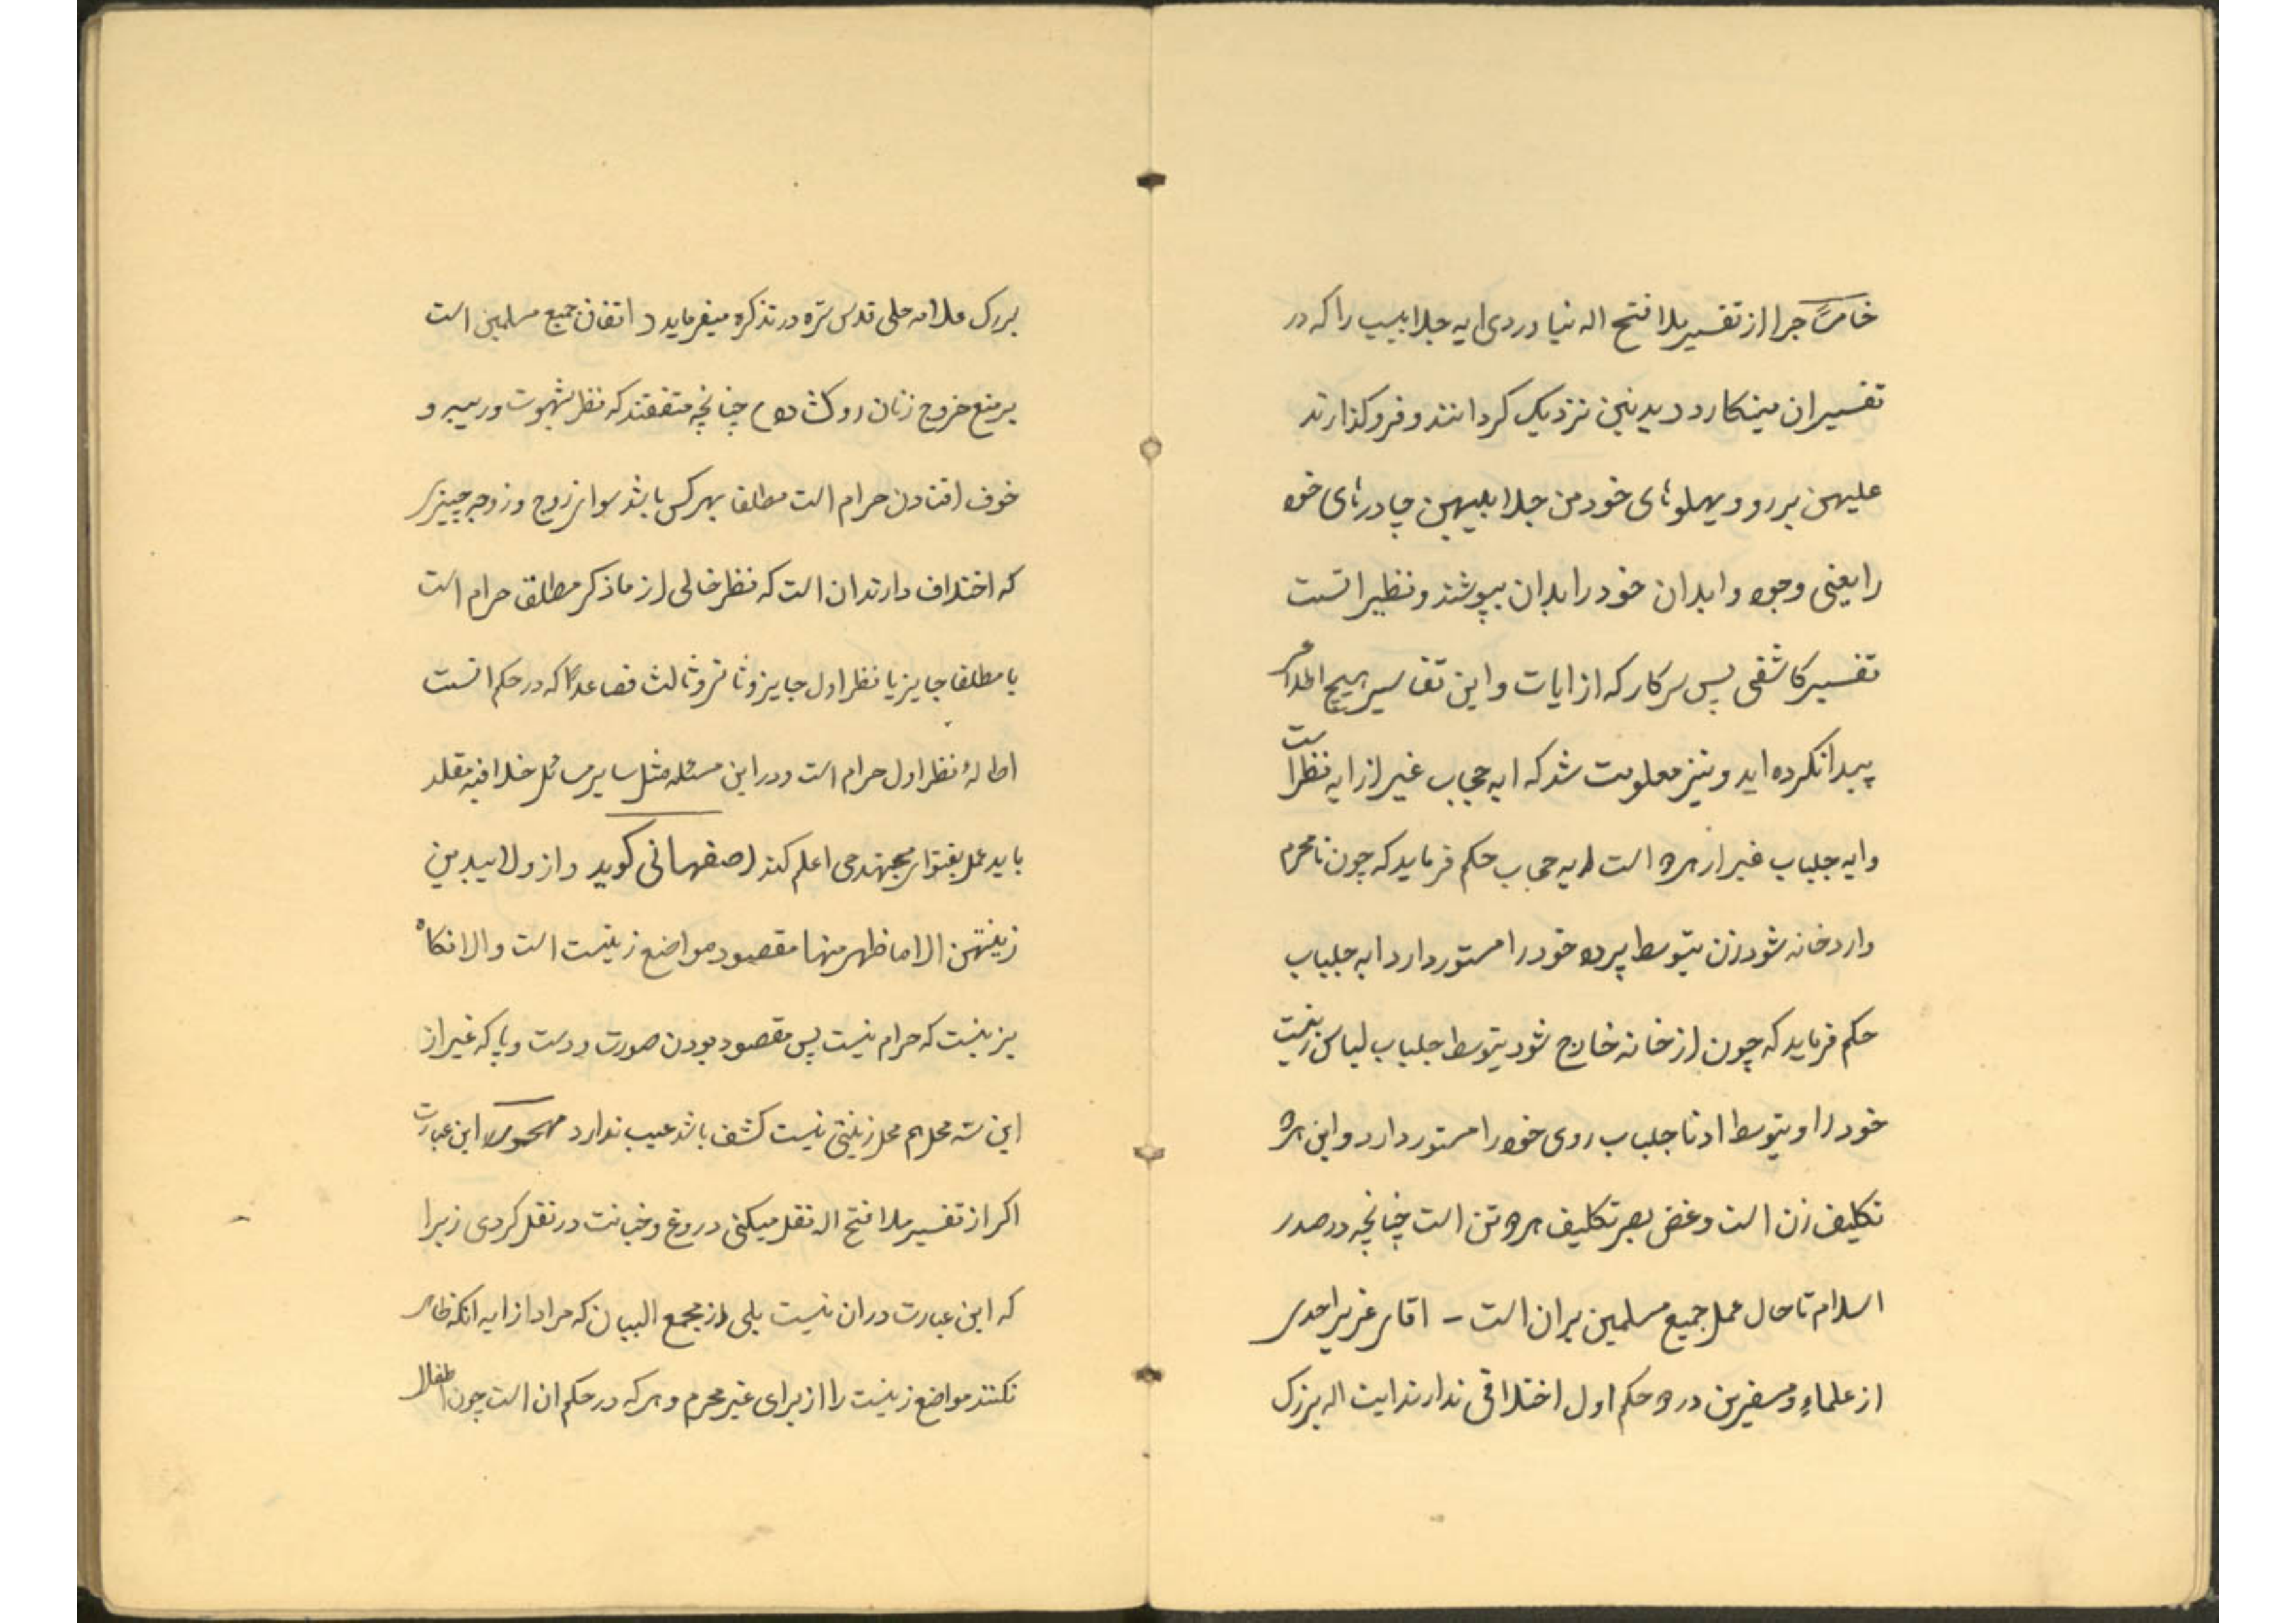 خامسًا چرا از تفسیر ملا فتح اله نیاوردی ایه جلابیب را که در
تفسیران مینکارد و یدنین نزدیک کردانند و فروکذارند
علیهن بر رو و پهلوهای خود من جلابلیهن چادرهای خود
را یعنی وجوه و ابدان خود را بدان بپوشند و نظیر انست
تفسیر کاشفی پس سرکار که از ایات و این تفاسیر هیچ اطلاع
پیدا نکرده اید و نیز معلومت شد که ایه حجاب غیر از ایه نظر است
و ایه جلباب غیر از هر دو است ایه حجاب حکم فرماید که چون نامحرم
وارد خانه شود زن بتوسط پرده خود را مستور دارد ایه جلباب
حکم فرماید که چون از خانه خارج شود بتوسط جلباب لباس زینت
خود را و بتوسط ادنا جلباب روی خود را مستور دارد و این هر دو
تکلیف زن است و غض بصر تکلیف هر دو تن است چنانچه در صدر
اسلام تا حال عمل جمیع مسلمین بران است - اقای عزیز احدی
از علماء و مفسرین در دو حکم اول اختلافی ندارند ایت اله بزرک
بزرک علامه حلی قدس سره در تذکره میفرماید د اتفاق جمیع مسلمین است
بر منع خروج زنان روکشاده) چنانچه متفقند که نظر بشهوت و ریبه و
خوف افتادن حرام است مطلقا بهر کس باشد سوای زوج و زوجه چیزی
که اختلاف دارند ان است که نظر خالی از ما ذکر مطلقا حرام است
یا مطلقا جایز یا نظر اول جایز و ثانی و ثالث فصاعدًا که در حکم انست
اطالهٔ نظر اول حرام است و در این مسئله مثل سایر مسائل خلافیه مقلد
باید عمل بفتوای مجتهد حی اعلم کند اصفهانی کوید و از ولا یبدین
زینتهن الا ما ظهر منها مقصود مواضع زینت است و الا نکاه
بزینت که حرام نیست پس مقصود بودن صورت و دست و پا که غیر از
این سه محل هم محل زینتی نیست کشف باشد عیب ندارد این عبارت
اکر از تفسیر ملا فتح اله نقل میکنی دروغ و خیانت در نقل کردی زیرا
که این عبارت در ان نیست بلی از مجمع البیان که مراد از ایه انکه ظاهر
نکنند مواضع زینت را از برای غیر محرم و هر که در حکم ان است چون اطفال